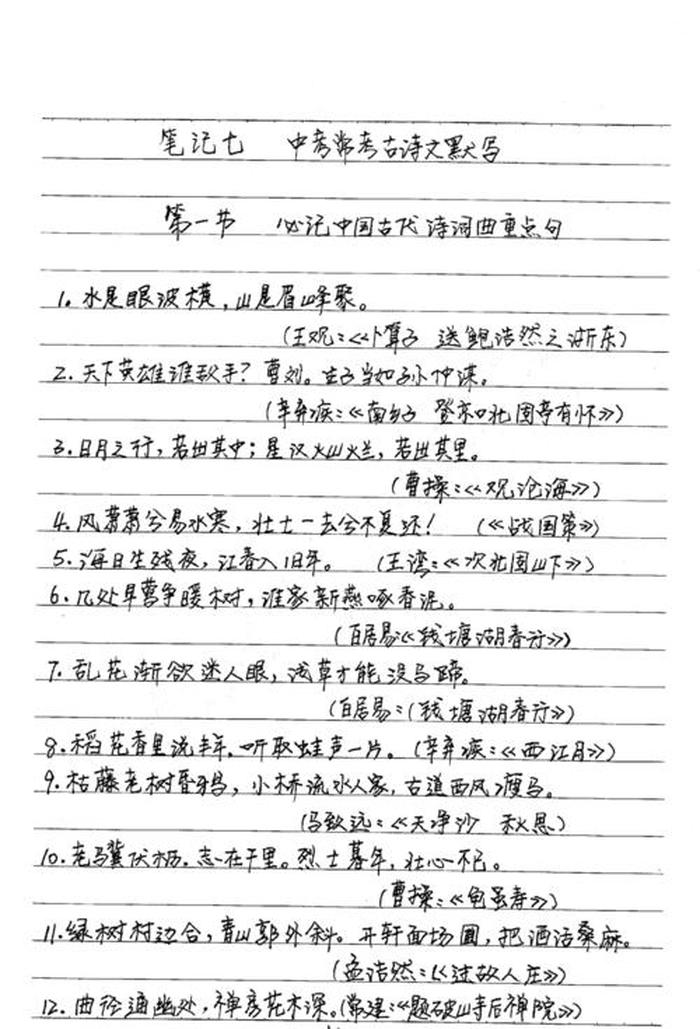 笔记七 中考常考古诗文默写
第一节 必记中国古代诗词曲重点句
1. 水是眼波横，山是眉峰聚。
(王观：《卜算子 送鲍浩然之浙东)
2. 天下英雄谁敌手？曹刘。生子当如孙仲谋。
(辛弃疾：《南乡子 登京口北固亭有怀》)
3. 日月之行，若出其中；星汉灿烂，若出其里。
(曹操：《观沧海》)
4. 风萧萧兮易水寒，壮士一去兮不复还！ (《战国策》)
5. 海日生残夜，江春入旧年。 (王湾：《次北固山下》)
6. 几处早莺争暖树，谁家新燕啄春泥。
(白居易《钱塘湖春行》)
7. 乱花渐欲迷人眼，浅草才能没马蹄。
(白居易：(钱塘湖春行》)
8. 稻花香里说丰年，听取蛙声一片。(辛弃疾：《西江月》)
9. 枯藤老树昏鸦，小桥流水人家，古道西风瘦马。
(马致远：《天净沙 秋思)
10. 老马冀伏枥，志在千里。烈士暮年，壮心不已。
(曹操：《龟虽寿》)
11. 绿树村边合，青山郭外斜。开轩面场圃，把酒话桑麻。
(孟浩然：《过故人庄》)
12. 曲径通幽处，禅房花木深。(常建：《题破山寺后禅院》)